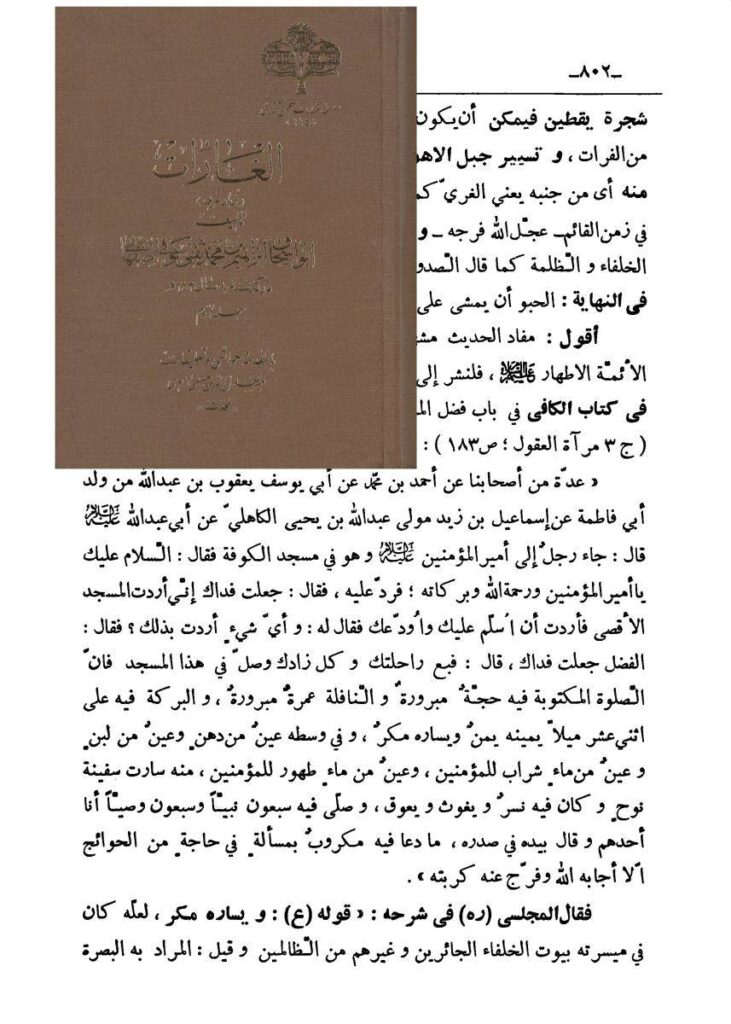 الغارات
ـ٨٠٢ـ
شجرة يقطين فيمكن أن يكون
من الفرات ، و تسيير جبل الاهو
منه أى من جنبه يعني الغريّ كم
في زمن القائم ـ عجّل الله فرجه ـ و
الخلفاء و الظلمة كما قال الصدو
فى النهاية : الحبو أن يمشى على
أقول : مفاد الحديث مش
الأئمّة الاطهار عليهم السلام ، فلنشر إلى
فى كتاب الكافى في باب فضل الم
( ج ٣ مرآة العقول ؛ ص١٨٣ ) :
« عدّة من أصحابنا عن أحمد بن محمّد عن أبي يوسف يعقوب بن عبدالله من ولد
أبي فاطمة عن إسماعيل بن زيد مولى عبدالله بن يحيى الكاهليّ عن أبي عبدالله عليه السلام
قال : جاء رجلٌ إلى أمير المؤمنين عليه السلام و هو في مسجد الكوفة فقال : السّلام عليك
يا أمير المؤمنين ورحمة الله وبركاته ؛ فردّ عليه ، فقال : جعلت فداك إنّي أردت المسجد
الأقصى فأردت أن اُسلّم عليك واُودّعك فقال له : و أيّ شيءٍ أردت بذلك ؟ فقال :
الفضل جعلت فداك ، قال : فبع راحلتك و كل زادك وصلّ في هذا المسجد فانّ
الصّلوة المكتوبة فيه حجّةٌ مبرورةٌ و النّافلة عمرةٌ مبرورةٌ ، و البركة فيه على
اثني عشر ميلاً يمينه يمنٌ ويساره مكرٌ ، و في وسطه عينٌ من دهنٍ وعينٌ من لبنٍ
و عينٌ من ماءٍ شراب للمؤمنين ، وعينٌ من ماءٍ طهور للمؤمنين ، منه سارت سفينة
نوحٍ و كان فيه نسرٌ و يغوث و يعوق ، و صلّى فيه سبعون نبيّاً وسبعون وصيّاً أنا
أحدهم و قال بيده في صدره ، ما دعا فيه مكروبٌ بمسألةٍ في حاجةٍ من الحوائج
الّا أجابه الله وفرّج عنه كربته » .
فقال المجلسى (ره) فى شرحه : « قوله (ع) : و يساره مكر ، لعلّه كان
في ميسرته بيوت الخلفاء الجائرين و غيرهم من الظّالمين و قيل : المراد به البصرة